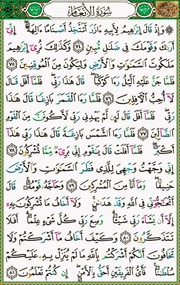 سورة الأنعام
۞ وَإِذْ قَالَ إِبْرَٰهِيمُ لِأَبِيهِ ءَازَرَ أَتَتَّخِذُ أَصْنَامًا ءَالِهَةً إِنِّىٓ
أَرَىٰكَ وَقَوْمَكَ فِى ضَلَٰلٍ مُّبِينٍ ٧٤ وَكَذَٰلِكَ نُرِىٓ إِبْرَٰهِيمَ
مَلَكُوتَ ٱلسَّمَٰوَٰتِ وَٱلْأَرْضِ وَلِيَكُونَ مِنَ ٱلْمُوقِنِينَ ٧٥
فَلَمَّا جَنَّ عَلَيْهِ ٱلَّيْلُ رَءَا كَوْكَبًا قَالَ هَٰذَا رَبِّى فَلَمَّآ أَفَلَ قَالَ
لَآ أُحِبُّ ٱلْءَافِلِينَ ٧٦ فَلَمَّا رَءَا ٱلْقَمَرَ بَازِغًا قَالَ هَٰذَا رَبِّى
فَلَمَّآ أَفَلَ قَالَ لَئِن لَّمْ يَهْدِنِى رَبِّى لَأَكُونَنَّ مِنَ ٱلْقَوْمِ ٱلضَّآلِّينَ
٧٧ فَلَمَّا رَءَا ٱلشَّمْسَ بَازِغَةً قَالَ هَٰذَا رَبِّى هَٰذَآ
أَكْبَرُ فَلَمَّآ أَفَلَتْ قَالَ يَٰقَوْمِ إِنِّى بَرِىٓءٌ مِّمَّا تُشْرِكُونَ ٧٨
إِنِّى وَجَّهْتُ وَجْهِىَ لِلَّذِى فَطَرَ ٱلسَّمَٰوَٰتِ وَٱلْأَرْضَ
حَنِيفًا وَمَآ أَنَا۠ مِنَ ٱلْمُشْرِكِينَ ٧٩ وَحَآجَّهُۥ قَوْمُهُۥ قَالَ
أَتُحَٰٓجُّوٓنِّى فِى ٱللَّهِ وَقَدْ هَدَىٰنِ وَلَآ أَخَافُ مَا تُشْرِكُونَ بِهِۦٓ
إِلَّآ أَن يَشَآءَ رَبِّى شَيْـًٔا وَسِعَ رَبِّى كُلَّ شَىْءٍ عِلْمًا أَفَلَا
تَتَذَكَّرُونَ ٨٠ وَكَيْفَ أَخَافُ مَآ أَشْرَكْتُمْ وَلَا
تَخَافُونَ أَنَّكُمْ أَشْرَكْتُم بِٱللَّهِ مَا لَمْ يُنَزِّلْ بِهِۦ عَلَيْكُمْ
سُلْطَٰنًا فَأَىُّ ٱلْفَرِيقَيْنِ أَحَقُّ بِٱلْأَمْنِ إِن كُنتُمْ تَعْلَمُونَ ٨١